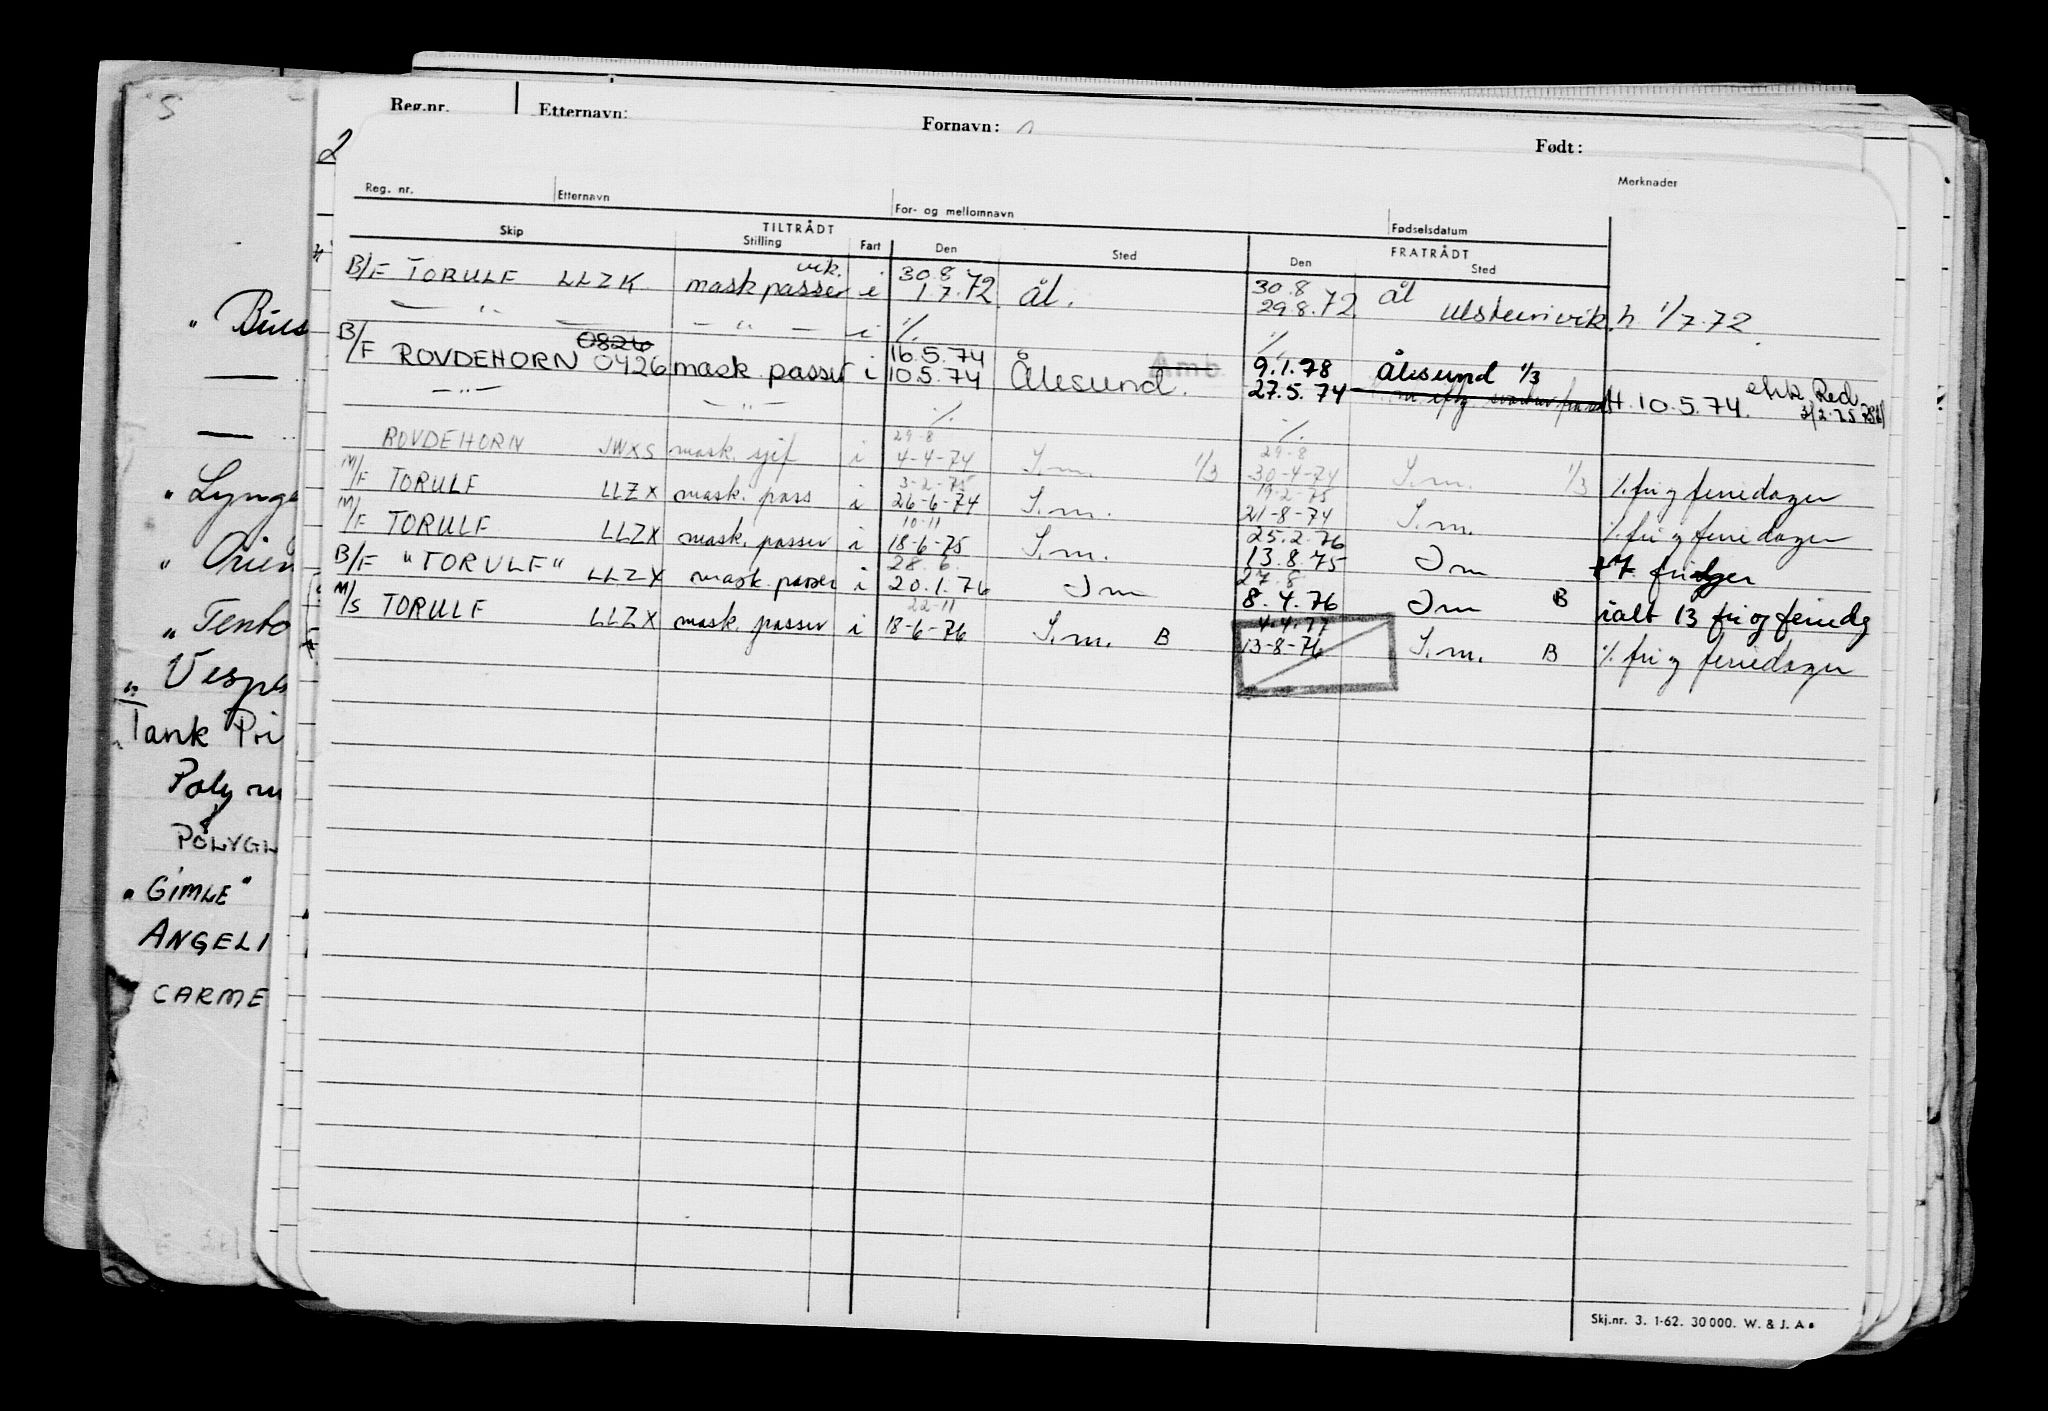 S
Reg.nr. Etternavn: Fornavn: Født:
2
Reg. nr. Etternavn For- og mellomnavn Fødselsdatum Merknader
Skip TILTRÅDT Stilling Fart Den Sted FRATRÅDT Den Sted
vik. 30.8 30.8 Ål
B/F TORULF LLZK mask passer i 1.7.72 Ål. 29.8.72 Ulsteinvik h 1/7.72.
— " — — " — i ·/. ·/.
0826 16.5.74 Amb. 9.1.78 Ålesund 1/3
B/F ROVDEHORN 0426 mask passer i 10.5.74 Ålesund. 27.5.74 H. 10.5.74. Red.
— " — — " — ·/. ·/.
29-8 29-8
ROVDEHORN JWXS mask. sjef i 4-4-74 S.m. 1/3 30-4-74 S.m. 1/3 ·/. fri og feriedager
3-2-75 19-2-75
M/F TORULF LLZX mask. pass i 26-6-74 S.m. 21-8-74 S.m. ·/. fri og feriedager
10-11 25.2.76
M/F TORULF LLZX mask. passer i 18-6-75 S.m. 13.8.75 Sm fridger
28.6. 27.8
B/F "TORULF" LLZX mask. passer i 20.1.76 Sm 8.4.76 Sm B ialt 13 fri og feriedg
22-11 4.4.77
M/S TORULF LLZX mask. passer i 18-6-76 S.m. B 13-8-76 S.m. B ·/. fri og feriedager
" Vesp
Tank Pri
POLYGL
"GIMLE"
ANGELI
CARME
Skj.nr. 3. 1-62. 30 000. W. & J. A.